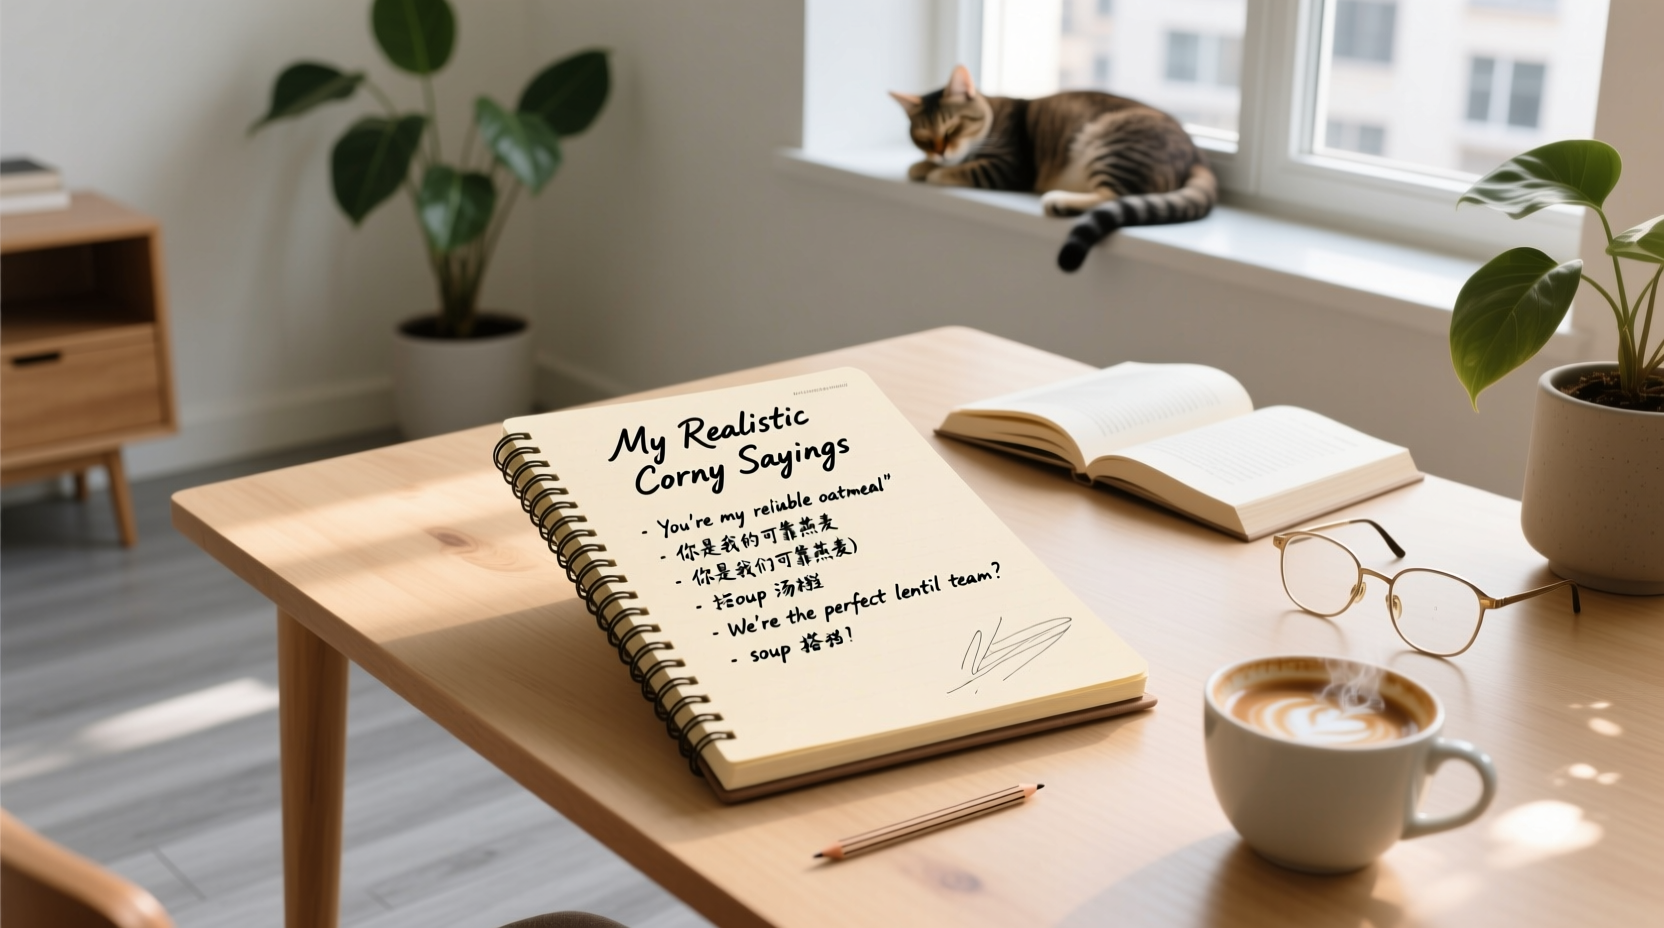 My Realistic
Corny Sayings
- You're my reliable oatmeal"
- 你是我的可靠燕麦
- 你是我们可靠燕麦)
- oup 汤
- We're the perfect lentil team?
- soup 搭 ?